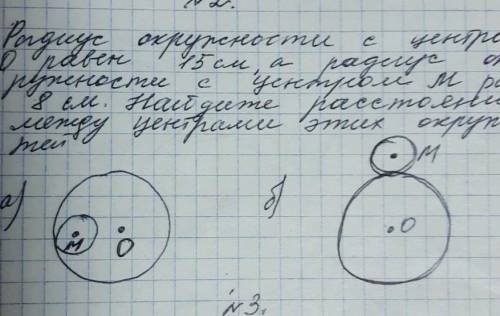 №2.
Радиус окружности с центро
О равен 15 см, а радиус ок
ружности с центром М ра
8 см. Найдите расстояни
между центрами этих окруж
тей
М
а)
б)
М
О
О
№3.